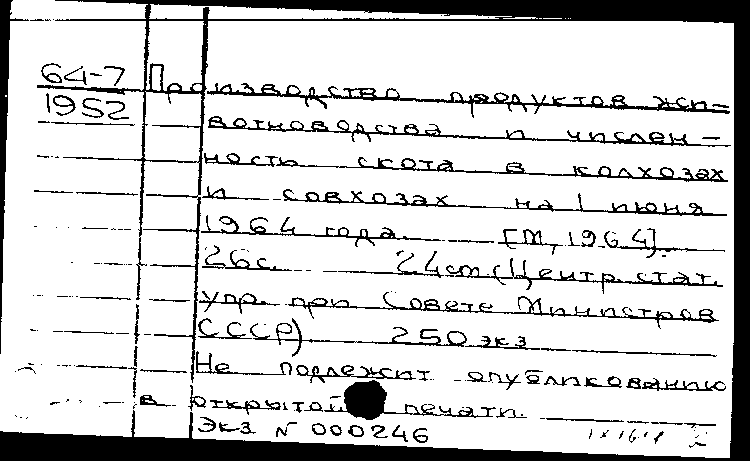 64-7
1952
Производство продуктов жи-
вотноводства и числен-
ность скота в колхозах
и совхозах на 1 июня
1964 года. [М, 1964].
26с. 24см (Центр. стат.
упр. при Совете Министров
СССР). 250 экз
Не подлежит опубликованию
в открытой печати.
Экз № 000246